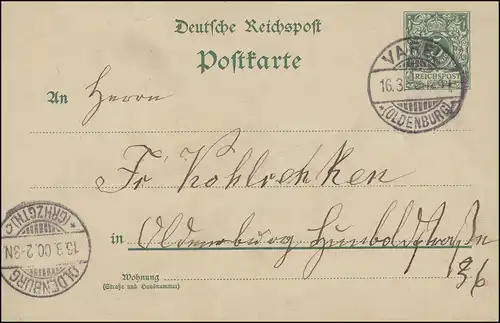 Deutsche Reichspost
Postkarte
REICHSPOST
VAREL
16.3.
*(OLDENBURG)*
An Herrn
Fr Kohlocken
in Oldenburg Humboldtstraße
36
Wohnung
(Straße und Hausnummer)
OLDENBURG
16.3.00.2-3N
*(GRHZGTH.)*